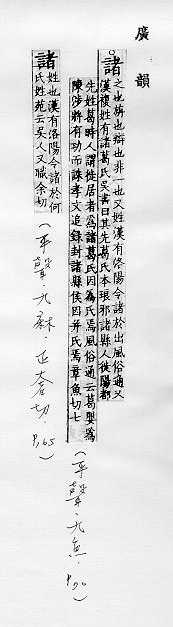 廣韻
諸 之也旃也辯也非一也又姓漢有洛陽令諸於出風俗通又
漢複姓有諸葛氏吳書曰其先葛氏本琅邪諸縣人徙陽都
先姓葛時人謂徙居者爲諸葛氏因爲氏焉風俗通云葛嬰爲
陳涉將有功而誅孝文追録封諸縣侯因并氏焉章魚切七
(平聲.九魚.P.70)
諸 姓也漢有洛陽令諸於何
氏姓苑云吳人又職余切
(平聲.九麻.正奢切.P.165)